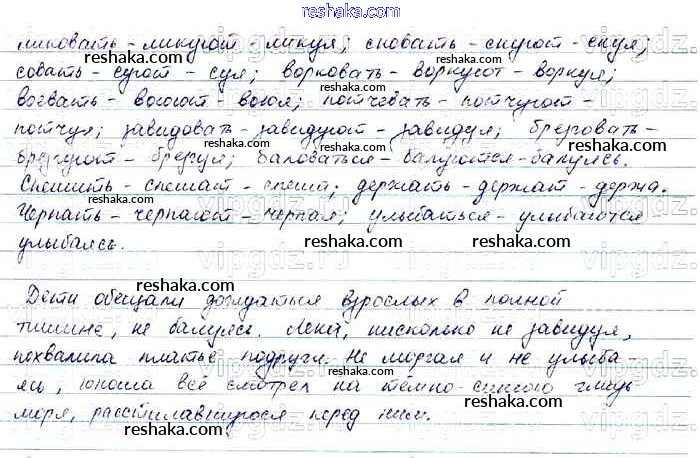 reshaka.com
ликовать - ликуют - ликуя; сновать - снуют - снуя;
совать - суют - суя; ворковать - воркуют - воркуя;
воевать - воюют - воюя; потчевать - потчуют -
потчуя; завидовать - завидуют - завидуя; брезговать -
брезгуют - брезгуя; баловаться - балуются - балуясь.
Спешить - спешат - спеша; держать - держат - держа.
Черпать - черпают - черпая; улыбаться - улыбаются
улыбаясь.
Дети обещали дождаться взрослых в полной
тишине, не балуясь. Лена, нисколько не завидуя,
похвалила платье подруги. Не моргая и не улыба-
ясь, юноша всё смотрел на тёмно-синюю гладь
моря, расстилавшуюся перед ним.
reshaka.com